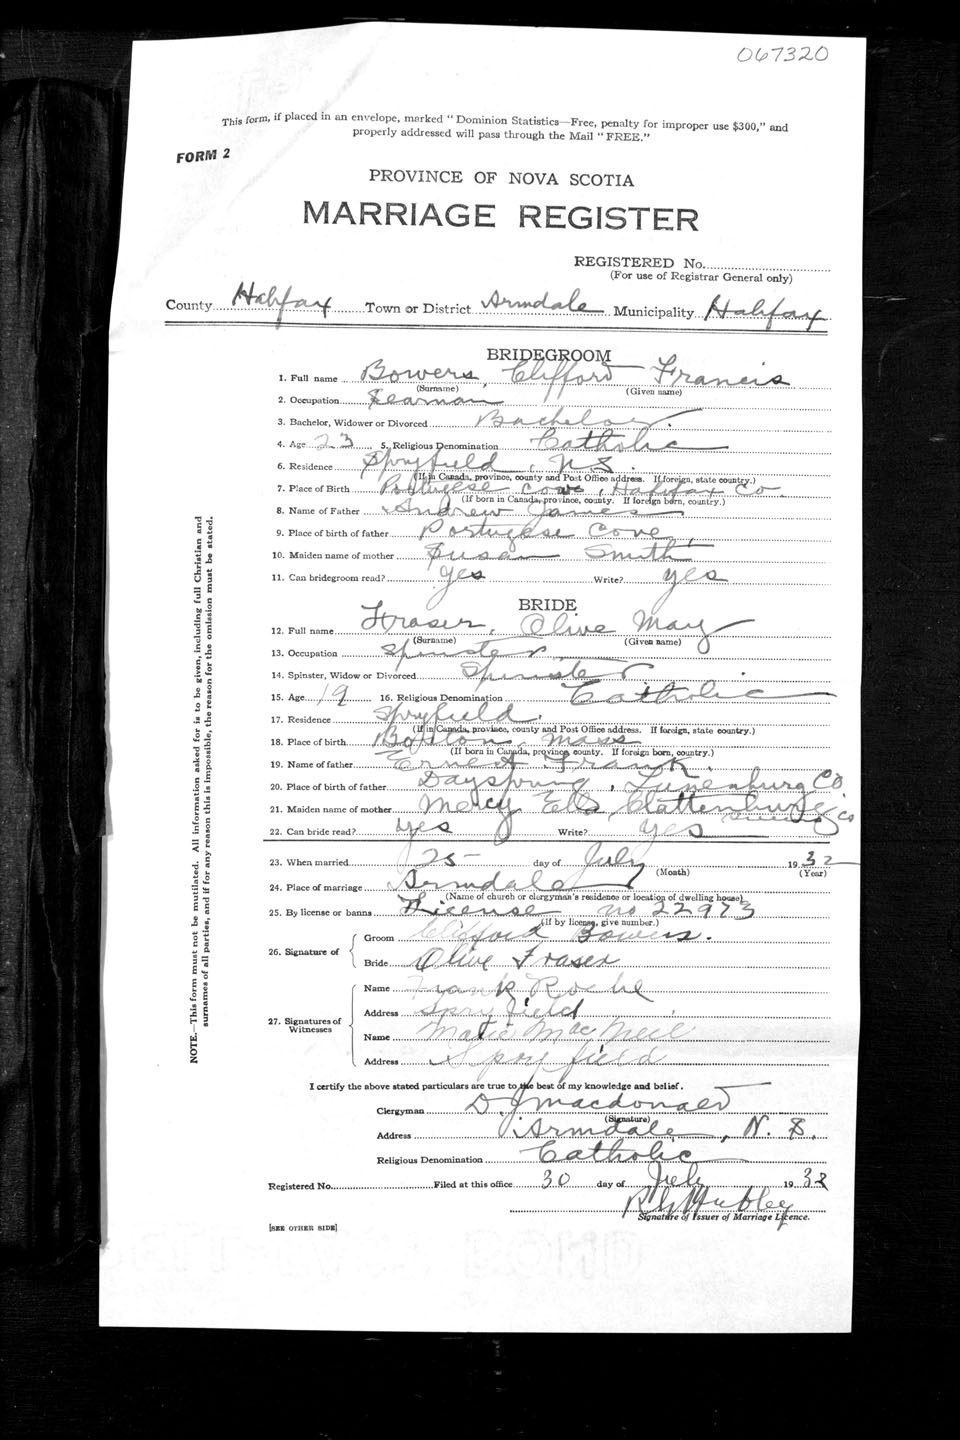 067320
This form, if placed in an envelope, marked "Dominion Statistics—Free, penalty for improper use $300," and
properly addressed will pass through the Mail "FREE."
FORM 2
PROVINCE OF NOVA SCOTIA
MARRIAGE REGISTER
REGISTERED No.
(For use of Registrar General only)
County Halifax Town or District Armdale Municipality Halifax
BRIDEGROOM
1. Full name Bowers, Clifford Francis
(Surname) (Given name)
2. Occupation Seaman
3. Bachelor, Widower or Divorced Bachelor.
4. Age 23 5. Religious Denomination Catholic
6. Residence Spryfield, N S.
(If in Canada, province, county and Post Office address. If foreign, state country.)
7. Place of Birth Portugese Cove, Halifax Co.
(If born in Canada, province, county. If foreign born, country.)
8. Name of Father Andrew James
9. Place of birth of father Portugese Cove,
10. Maiden name of mother Susan Smith
11. Can bridegroom read? yes Write? yes
BRIDE
12. Full name Fraser, Olive May
(Surname) (Given name)
13. Occupation Spinster
14. Spinster, Widow or Divorced Spinster
15. Age 19 16. Religious Denomination Catholic
17. Residence Spryfield.
(If in Canada, province, county and Post Office address. If foreign, state country.)
18. Place of birth Boston, Mass
(If born in Canada, province, county. If foreign born, country.)
19. Name of father Ernest Frank.
20. Place of birth of father Dayspring, Lunenburg Co
21. Maiden name of mother Mercy Ells, Clattenburg
Co
22. Can bride read? yes Write? yes
23. When married 25 day of July 1932
(Month) (Year)
24. Place of marriage Armdale
(Name of church or clergyman's residence or location of dwelling house)
25. By license or banns License no 22973
(If by license, give number.)
26. Signature of Groom Clifford Bowers.
Bride Olive Fraser
27. Signatures of Witnesses
Name Frank Roche
Address Spryfield
Name MacNeil
Address Spryfield
I certify the above stated particulars are true to the best of my knowledge and belief.
Clergyman D J Macdonald
(Signature)
Address Armdale, N. S.
Religious Denomination Catholic
Registered No. Filed at this office 30 day of July 1932
Hubley
Signature of Issuer of Marriage Licence.
[SEE OTHER SIDE]
NOTE.—This form must not be mutilated. All information asked for is to be given, including full Christian and
surnames of all parties, and if for any reason this is impossible, the reason for the omission must be stated.